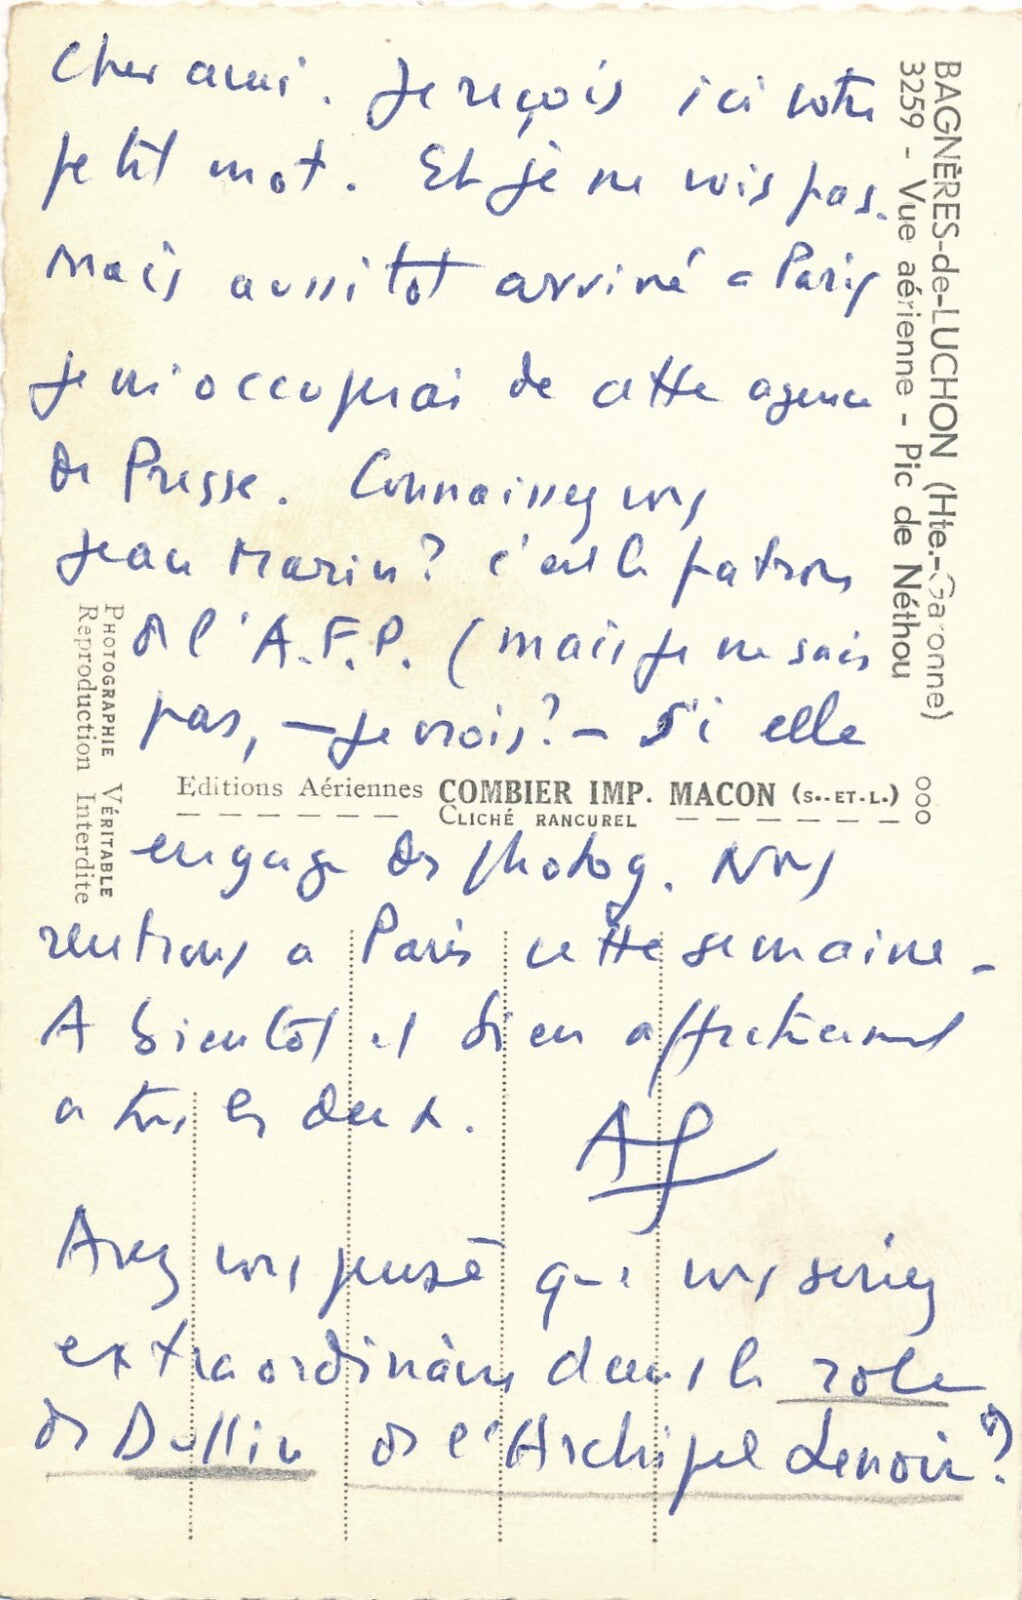 Cher ami. Je reçois ici votre
petit mot. Et je ne vois pas.
Mais aussitot arrivé a Paris
je m'occuperai de cette agence
de Presse. Connaissez vous
Jean Marin? c'est le patron
de l'A.F.P. (mais je ne sais
pas, — je crois? — Si elle
engage des photog. Nous
rentrons a Paris cette semaine -
A bientôt et bien affectueusement
a tous les deux.
AS
Avez vous pensé que vous seriez
extraordinaire dans le role
de Dullin de l'Archipel Lenoir?
BAGNÈRES-de-LUCHON (Hte.-Garonne)
3259 - Vue aérienne - Pic de Néthou
PHOTOGRAPHIE VÉRITABLE
Reproduction Interdite
Editions Aériennes COMBIER IMP. MACON (S.-ET-L.)
CLICHÉ RANCUREL